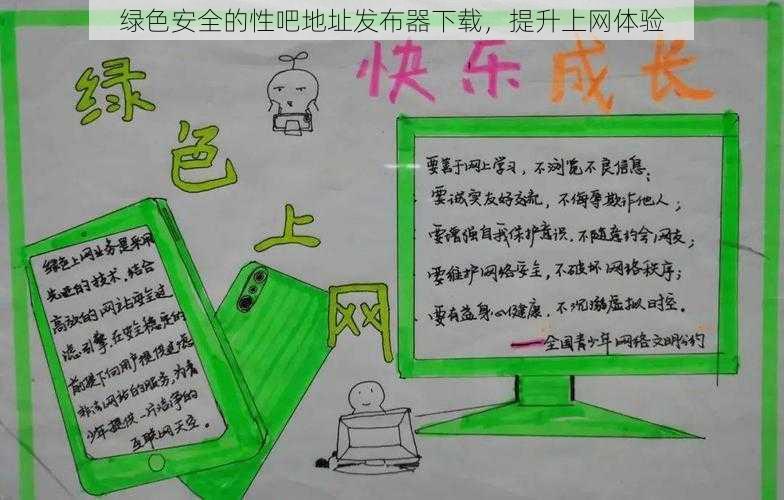 绿色安全的性吧地址发布器下载，提升上网体验
绿色上网
快乐成长
绿色上网业务是采用
先进的技术，结合
高效的网站安全过
滤引擎在安全稳定的
前提下向用户提供过滤
非法网站的服务，为青
少年提供一片洁净的
互联网天空。
要善于网上学习，不浏览不良信息；
要诚实友好交流，不侮辱欺诈他人；
要增强自我保护意识，不随意约会网友；
要维护网络安全，不破坏网络秩序；
要有益身心健康，不沉溺虚拟时空。
——全国青少年网络文明公约